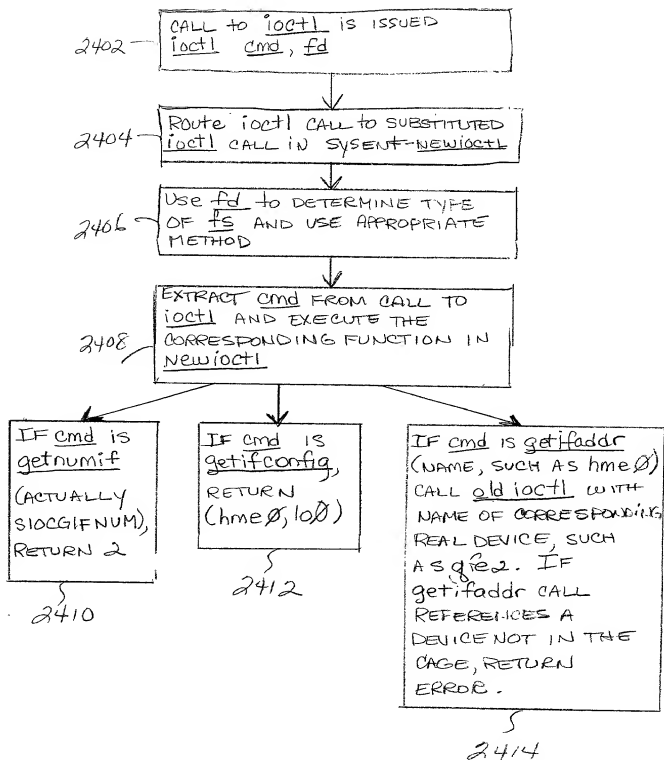 CALL to ioctl is ISSUED
ioctl cmd, fd
2402
Route ioctl CALL to SUBSTITUTED
ioctl CALL in SYSENT-NEWioctl
2404
Use fd to DETERMINE TYPE
OF fs AND USE APPROPRIATE
METHOD
2406
EXTRACT cmd FROM CALL TO
ioctl AND EXECUTE THE
CORRESPONDING FUNCTION IN
NEWioctl
2408
IF cmd is
getnumif
(ACTUALLY
SIOCGIFNUM),
RETURN 2
2410
IF cmd IS
getifconfig,
RETURN
(hme0, lo0)
2412
IF cmd is getifaddr
(NAME, SUCH AS hme0)
CALL old ioctl WITH
NAME OF CORRESPONDING
REAL DEVICE, SUCH
AS qfe2. IF
getifaddr CALL
REFERENCES A
DEVICE NOT IN THE
CAGE, RETURN
ERROR.
2414